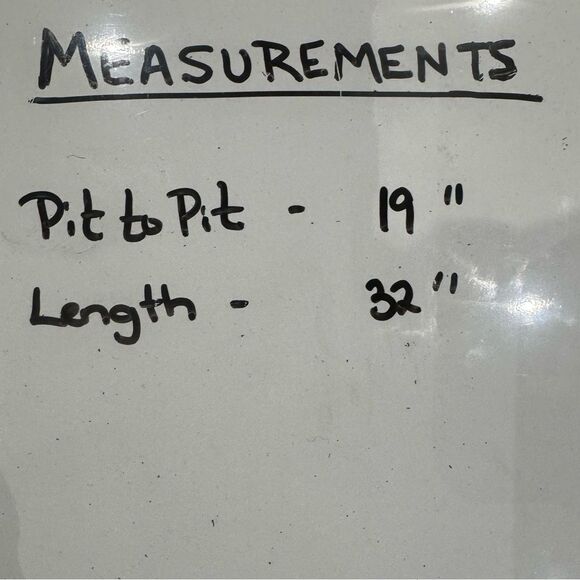 MEASUREMENTS
Pit to Pit - 19"
Length - 32"